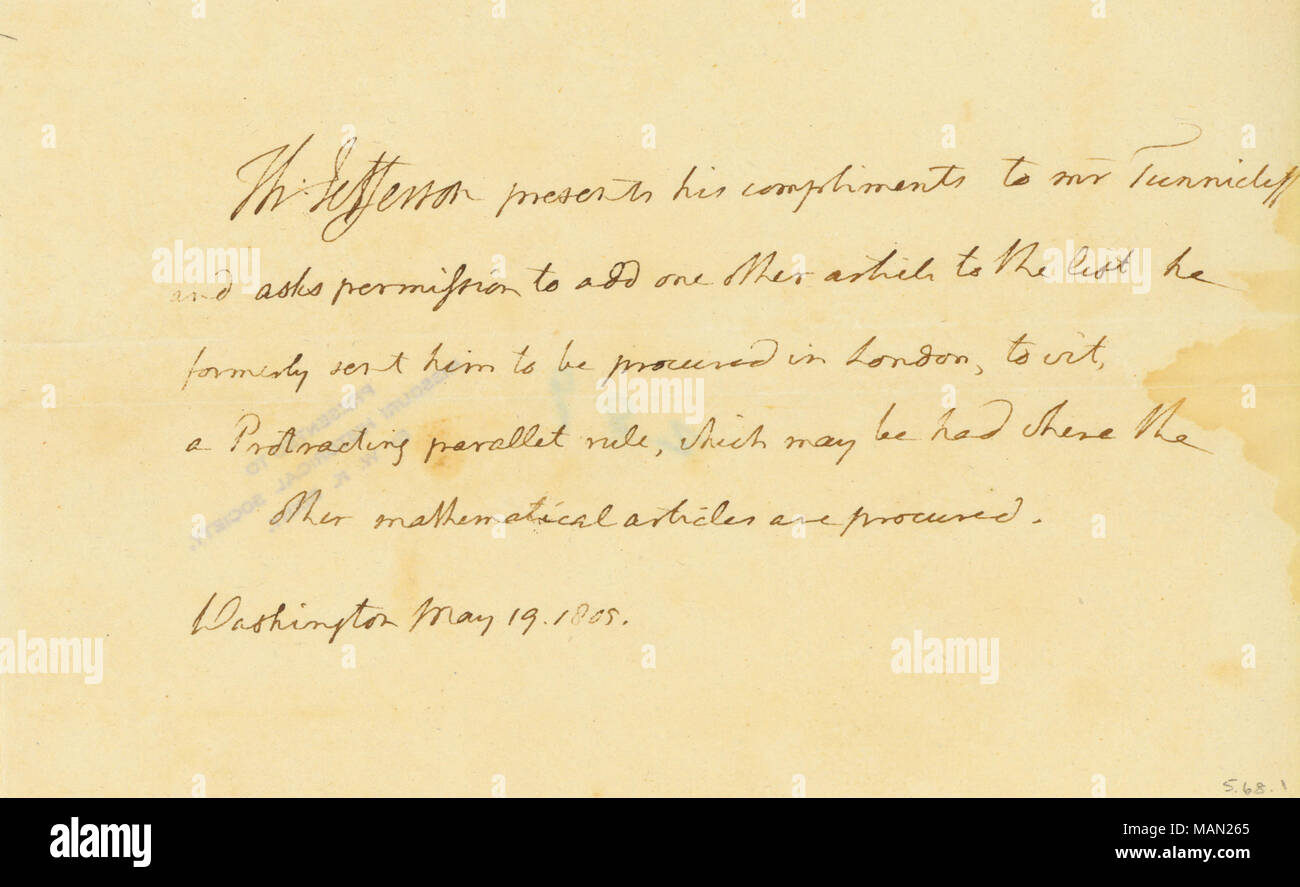 Th: Jefferson presents his compliments to mr Tunnicliff
and asks permission to add one other article to the list he
formerly sent him to be procured in London, to wit,
a Protracting parallel rule, which may be had where the
other mathematical articles are procured.
Washington May 19. 1805.
PRESENTED TO
MISSOURI HISTORICAL SOCIETY
5.68.1
alamy
a
alamy stock photo
MAN265
www.alamy.com